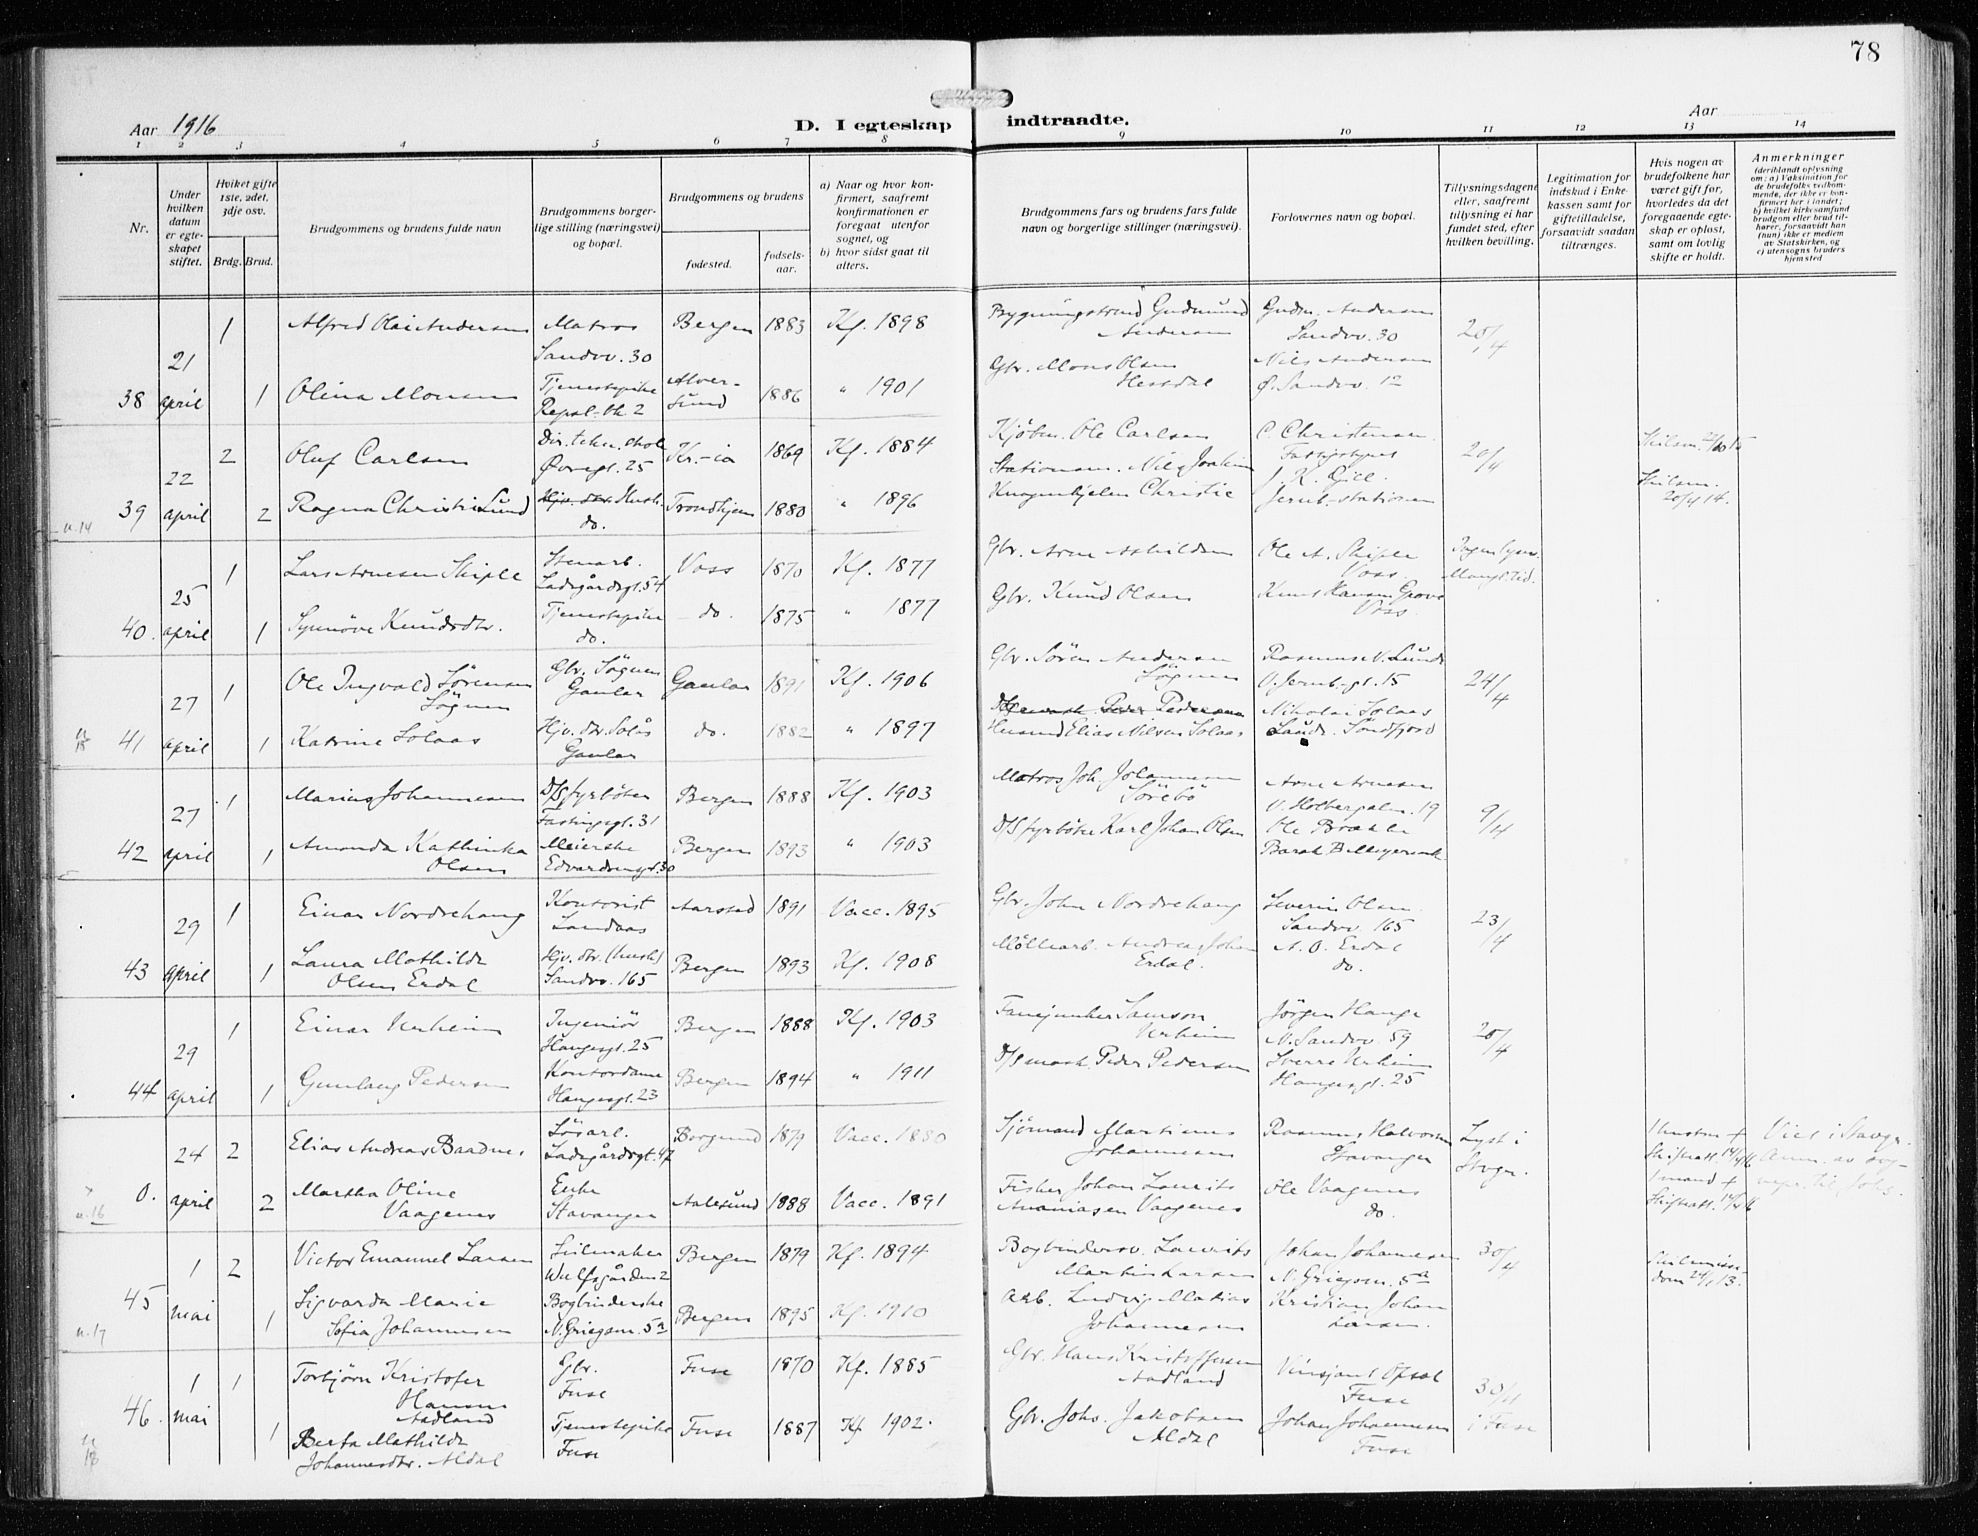 78
Aar 1916
D. I egteskap indtraadte.
Aar
1 2 3 4 5 6 7 8 9 10 11 12 13 14
Nr.
Under hvilken datum er egteskapet stiftet.
Hviket gifte 1ste, 2det, 3dje osv.
Brdg. Brud.
Brudgommens og brudens fulde navn
Brudgommens borgerlige stilling (næringsvei) og bopæl.
Brudgommens og brudens
fødested.
fødselsaar.
a) Naar og hvor konfirmert, saafremt konfirmationen er foregaat utenfor sognet, og
b) hvor sidst gaat til alters.
Brudgommens fars og brudens fars fulde navn og borgerlige stillinger (næringsvei).
Forlovernes navn og bopæl.
Tillysningsdagene eller, saafremt tillysning ei har fundet sted, efter hvilken bevilling.
Legitimation for indskud i Enkekassen samt for giftetilladelse, forsaavidt saadan tiltrænges.
Hvis nogen av brudefolkene har været gift før, hvorledes da det foregaaende egteskap er opløst, samt om lovlig skifte er holdt.
Anmerkninger
(deriblandt oplysning om: a) Vaksination for de brudefolks vedkommende, der ikke er konfirmert her i landet; b) hvilket kirkesamfund brudgom eller brud tilhører, forsaavidt han (hun) ikke er medlem av Statskirken, og c) utensogns bruders hjemsted
38 21 april
1 Alfred Olai Andersen Matros Sandvv. 30 Bergen 1883 Kf. 1898 Gudmund Andersen Gudm. Andersen Sandvv. 30 20/4
1 Olina Monsen Tjenestepike Repsl-th. 2 Alversund 1886 " 1901 Gbr. Mons Olsen Hestdal Nils Andersen Ø. Sandvv. 12
39 22 april
2 Oluf Carlsen Dir. tekn. skole Øvregt. 25 Kr.-ia 1869 Kf. 1884 Kjøbm. Ole Carlsen C. Christensen 20/4
n. 14
2 Ragna Christie Lund Hush. do. Trondhjem 1880 " 1896 Christie J. K. Gill Jernb. stationen 20/4 14.
40. 25 april
1 Lars Arnesen Skiple Stenarb. Ladegårdsgt. 54 Voss 1870 Kf. 1877 Gbr. Arne Askildsen Ole A. Skiple Voss
1 Synnöve Knudsdtr. Tjenestepike do. do. 1875 " 1877 Gbr. Knud Olsen Voss.
41 27 april
1 Ole Ingvald Sørensen Sögnen Gbr. Sögnen Gaular Gaular 1891 Kf. 1906 Gbr. Sören Andersen Sögnen Rasmus N. Lunde 15 24/4
n 15
1 Katrine Solaas Hjv. dtr. Solås Gaular do. 1882 " 1897 Peder Pedersen Husmd Elias Nilsen Solaas Nikolai Solaas Söndfjord
42 27 april
1 Marius Johannesen D/S fyrböter Fastingsgt. 31 Bergen 1888 Kf. 1903 Matros Joh. Johannesen Sörebö Arne Arnesen V. Holbergsalm. 19 9/4
1 Amanda Kathinka Olsen Meierske Edvardsensgt. 30 Bergen 1893 " 1903 D/S fyrböter Karl Johan Olsen Ole
43 29 april
1 Einar Nordrehaug Kontorist Landaas Aarstad 1891 Vacc. 1895 Gbr. John Nordrehaug Severin Olsen Sandvv. 165 23/4
1 Laura Mathilde Olsen Erdal Hjv. dtr. (hush.) Sandvv. 165 Bergen 1893 Kf. 1908 Möllearb. Andreas Johan Erdal. A. O. Erdal do.
44 29 april
1 Einar Urheim Ingeniör Haugesgt. 25 Bergen 1888 Kf. 1903 Fanejunker Samson Urheim Jörgen Hauge N. Sandvv. 59 20/4
1 Gunlaug Pedersen Kontordame Haugesgt. 23 Bergen 1894 " 1911 D/S mask. Peder Pedersen Sverre Urheim Haugesgt. 25
0. 24 april
2 Elias Andreas Baadnes Lösarb. Ladegårdsgt. 47 Borgund 1879 Vacc. 1880 Sjömand Martinus Johannesen Rasmus Halvorsen Stavanger Lyst i Stvgr. 1 hustru + Skifteatt. 14/4 16 Viet i Stavgr. Anm. av sognepr. til Johs.
n. 16
2 Martha Oline Vaagenes Enke Stavanger Aalesund 1888 Vacc. 1891 Fisker Johan Laurits Ananiasen Vaagenes Ole Vaagenes do. 1 mand + Skifteatt. 14/4 16
45 1 mai
2 Victor Emanuel Larsen Seilmaker Wulfsgården 2 Bergen 1879 Kf. 1894 Bogbindersv. Laurits Martin Larsen Johan Johannesen N. Griegsm. 5a 30/4
n. 17
1 Sigvarda Marie Sofia Johannesen Bogbinderske N. Griegsm. 5a Bergen 1895 Kf. 1910 Arb. Ludvig Matias Johannesen Kristian Johan Larsen.
46. 1 mai
1 Torbjörn Kristofer Hansen Aadland Gbr. Fuse Fuse 1870 Kf. 1885 Gbr. Hans Kristoffersen Aadland Vinsjans Opsal Fuse 30/4 i Fuse
n 18
1 Berta Mathilde Johannesdtr. Aldal Tjenestepike Fuse Fuse 1887 Kf 1902. Gbr. Johs. Jakobsen Aldal Johan Johannesen Fuse